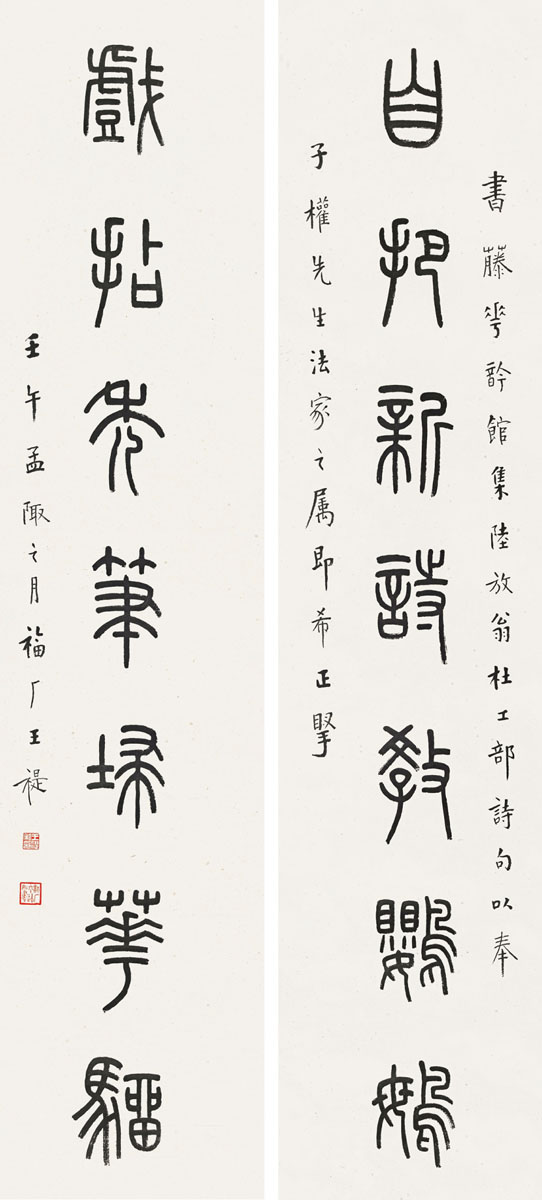 書藤花䪩館集陸放翁杜工部詩句以奉
自把新詩教鸚䳇
子權先生法家之属即希正掔
戲拈禿筆埽華驑
壬午孟陬之月福厂王禔